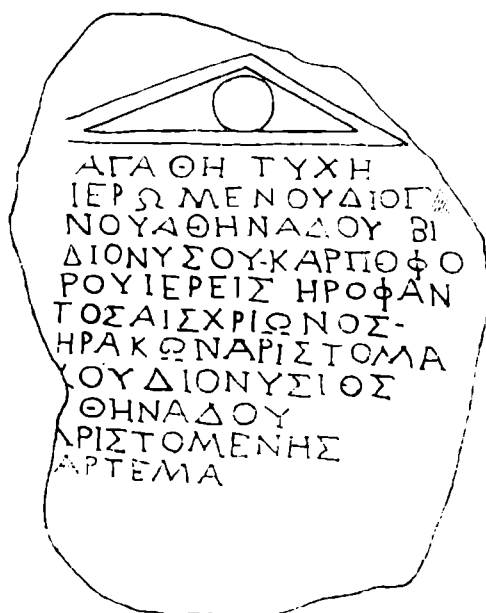 ΑΓΑΘΗ ΤΥΧΗ
ΙΕΡΩΜΕΝΟΥΔΙΟΓ
ΝΟΥΑΘΗΝΑΔΟΥ ΒΙ
ΔΙΟΝΥΣΟΥ-ΚΑΡΠΟΦΟ
ΡΟΥΙΕΡΕΙΣ ΗΡΟΦΑΝ
ΤΟΣΑΙΣΧΡΙΩΝΟΣ-
ΗΡΑΚΩΝΑΡΙΣΤΟΜΑ
ΧΟΥΔΙΟΝΥΣΙΟΣ
ΘΗΝΑΔΟΥ
ΑΡΙΣΤΟΜΕΝΗΣ
ΑΡΤΕΜΑ